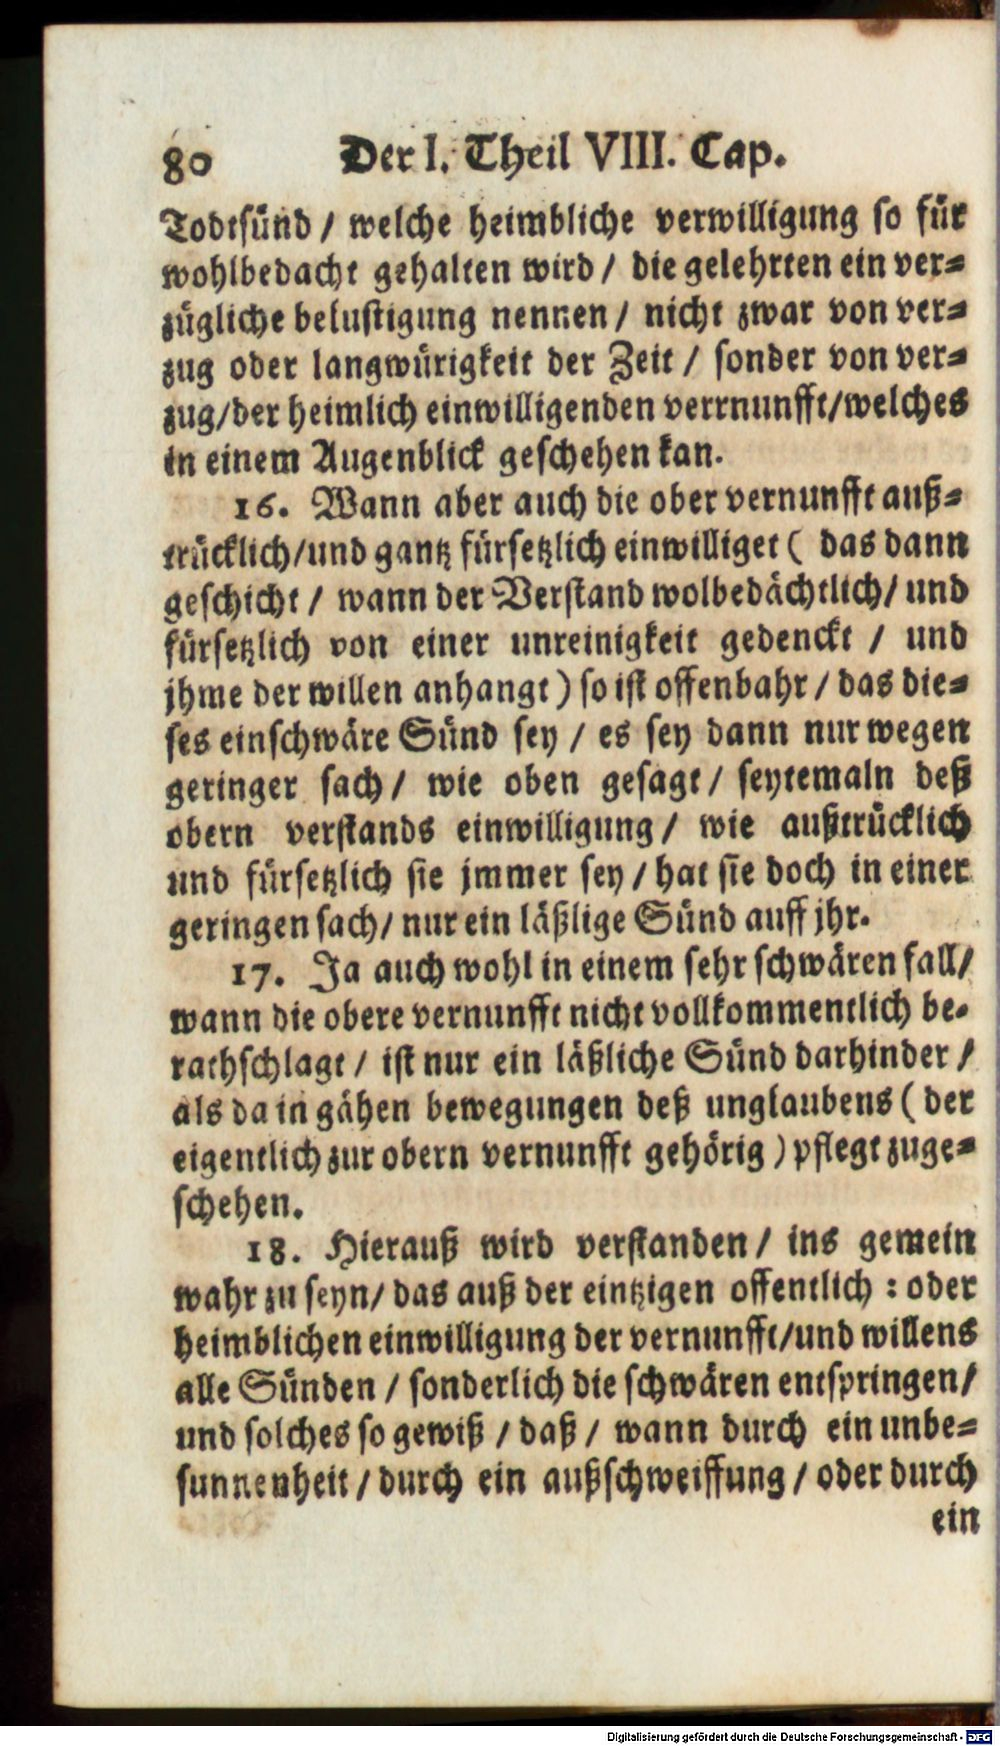 80 Der I. Theil VIII. Cap.
Todtsünd / welche heimbliche verwilligung so für
wohlbedacht gehalten wird / die gelehrten ein ver=
zügliche belustigung nennen / nicht zwar von ver=
zug oder langwürigkeit der Zeit / sonder von ver=
zug/der heimlich einwilligenden verrnunfft/welches
in einem Augenblick geschehen kan.
16. Wann aber auch die ober vernunfft auß=
trücklich/und gantz fürsetzlich einwilliget ( das dann
geschicht / wann der Verstand wolbedächtlich/ und
fürsetzlich von einer unreinigkeit gedenckt / und
jhme der willen anhangt ) so ist offenbahr / das die=
ses einschwäre Sünd sey / es sey dann nur wegen
geringer sach / wie oben gesagt / seytemaln deß
obern verstands einwilligung / wie außtrücklich
und fürsetzlich sie jmmer sey / hat sie doch in einer
geringen sach / nur ein läßlige Sünd auff jhr.
17. Ja auch wohl in einem sehr schwären fall/
wann die obere vernunfft nicht vollkommentlich be=
rathschlagt / ist nur ein läßliche Sünd darhinder /
als da in gähen bewegungen deß unglaubens ( der
eigentlich zur obern vernunfft gehörig ) pflegt zuge=
schehen.
18. Hierauß wird verstanden / ins gemein
wahr zu seyn/ das auß der eintzigen offentlich : oder
heimblichen einwilligung der vernunfft/und willens
alle Sünden / sonderlich die schwären entspringen/
und solches so gewiß / daß / wann durch ein unbe=
sunnenheit / durch ein außschweiffung / oder durch
ein
Digitalisierung gefördert durch die Deutsche Forschungsgemeinschaft - DFG